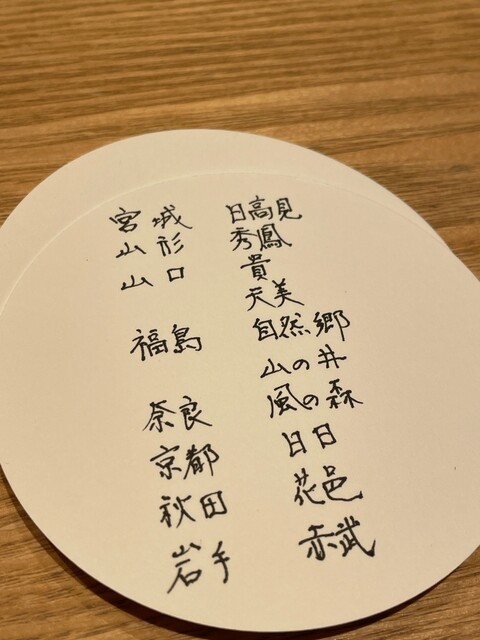 宮城 日高見
山形 秀鳳
山口 貴
天美
福島 自然郷
山の井
奈良 風の森
京都 日日
秋田 花邑
岩手 赤武